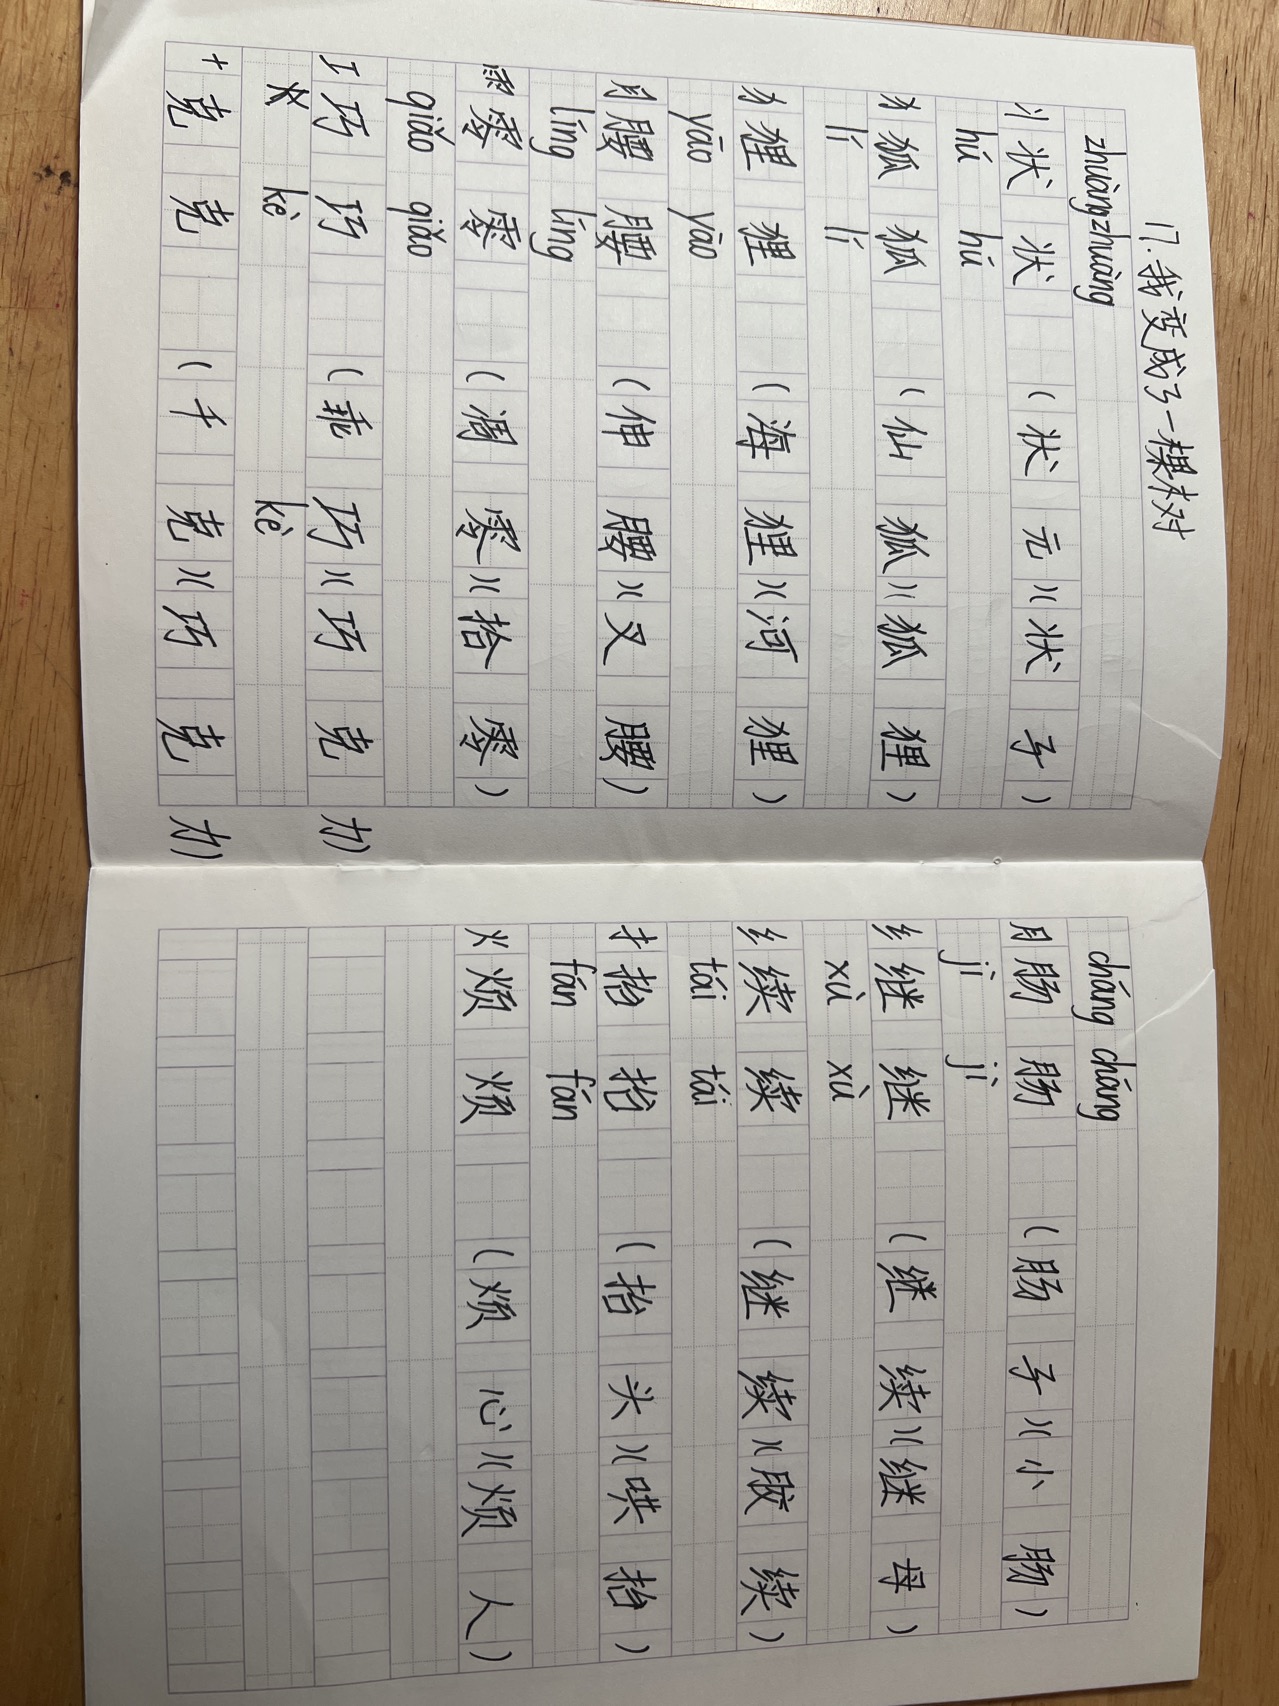 17.我变成了一棵树
zhuàng zhuàng
丬 状 状 (状元)(状子)
hú hú
犭 狐 狐 (仙狐)(狐狸)
lí lí
犭 狸 狸 (海狸)(河狸)
yāo yāo
月 腰 腰 (伸腰)(叉腰)
líng líng
零 零 (凋零)(拾零)
qiǎo qiǎo
工 巧 巧 (乖巧)(巧克力)
kè kè
十 克 克 (千克)(巧克力)
cháng cháng
月 肠 肠 (肠子)(小肠)
jì jì
纟 继 继 (继续)(继母)
xù xù
纟 续 续 (继续)(胶续)
tái tái
扌 抬 抬 (抬头)(哄抬)
fán fán
火 烦 烦 (烦心)(烦人)